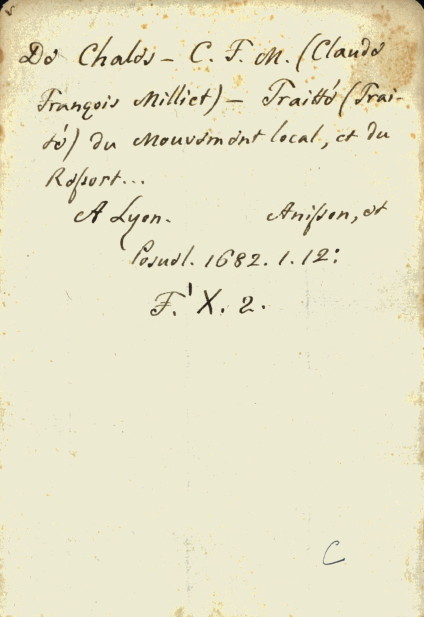 De Chales - C. F. M. (Claude
François Milliet) - Traitté (Trai-
té) du Mouvement local, et du
Ressort...
A Lyon. Anisson, et
Posuel. 1682. 1. 12:
F.' X. 2.
C